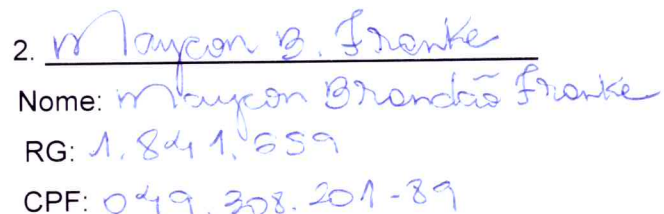 2. Maycon B. Franke
Nome: Maycon Brandão Franke
RG: 1.841.659
CPF: 049.308.201-89